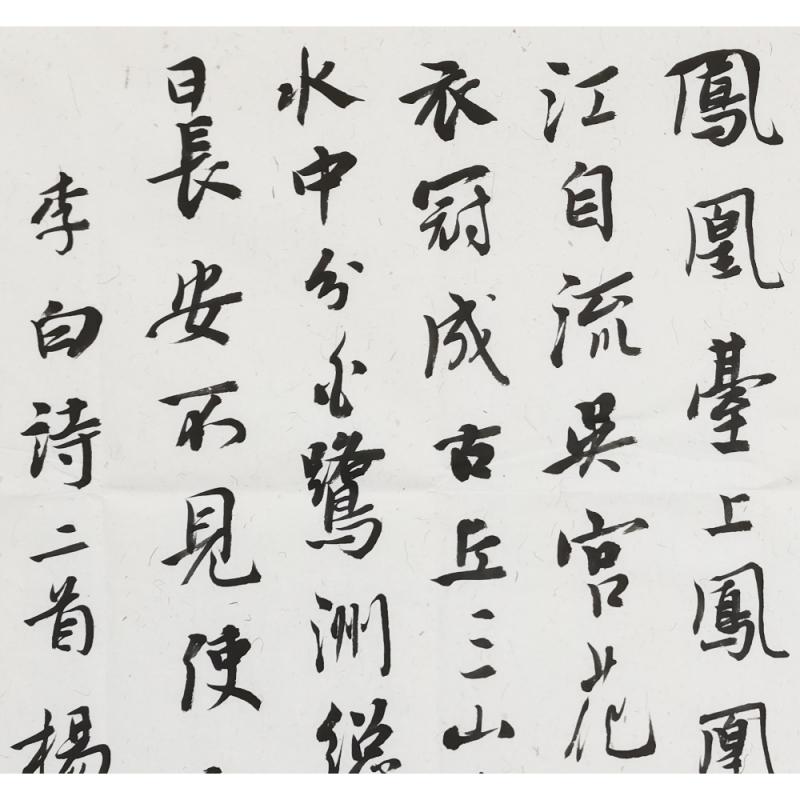 鳳凰臺上鳳凰
江自流吳宮花
衣冠成古丘三山
水中分白鷺洲總
日長安不見使
李白詩二首楊